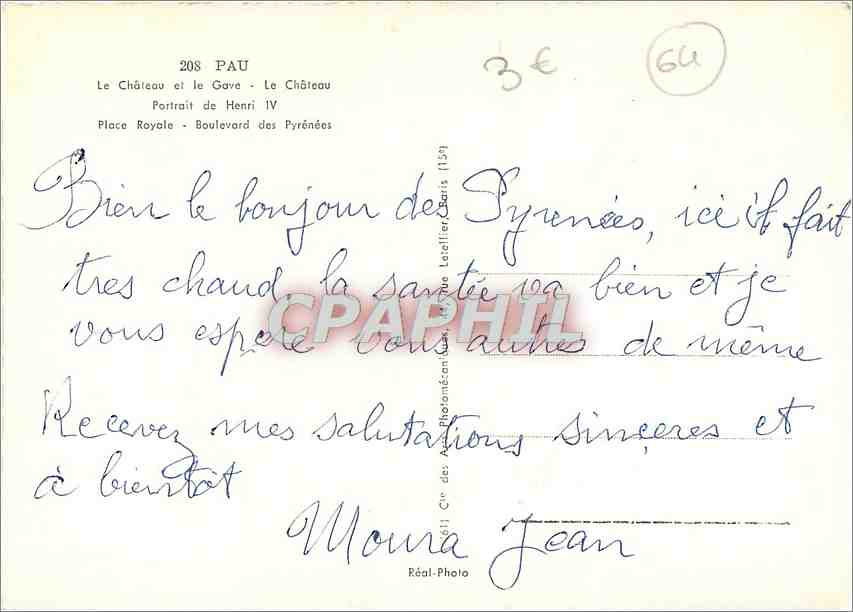 208 PAU
Le Château et le Gave - Le Château
Portrait de Henri IV
Place Royale - Boulevard des Pyrénées
3 €
64
Bien le bonjour des Pyrenées, ici il fait
tres chaud, la santée va bien et je
vous espere vous autres de même
Recevez mes salutations sinçeres et
à bientôt
Moura Jean
CPAPHIL
(61) Cie des Arts Photomécaniques, rue Letellier, Paris (15e)
Réal-Photo